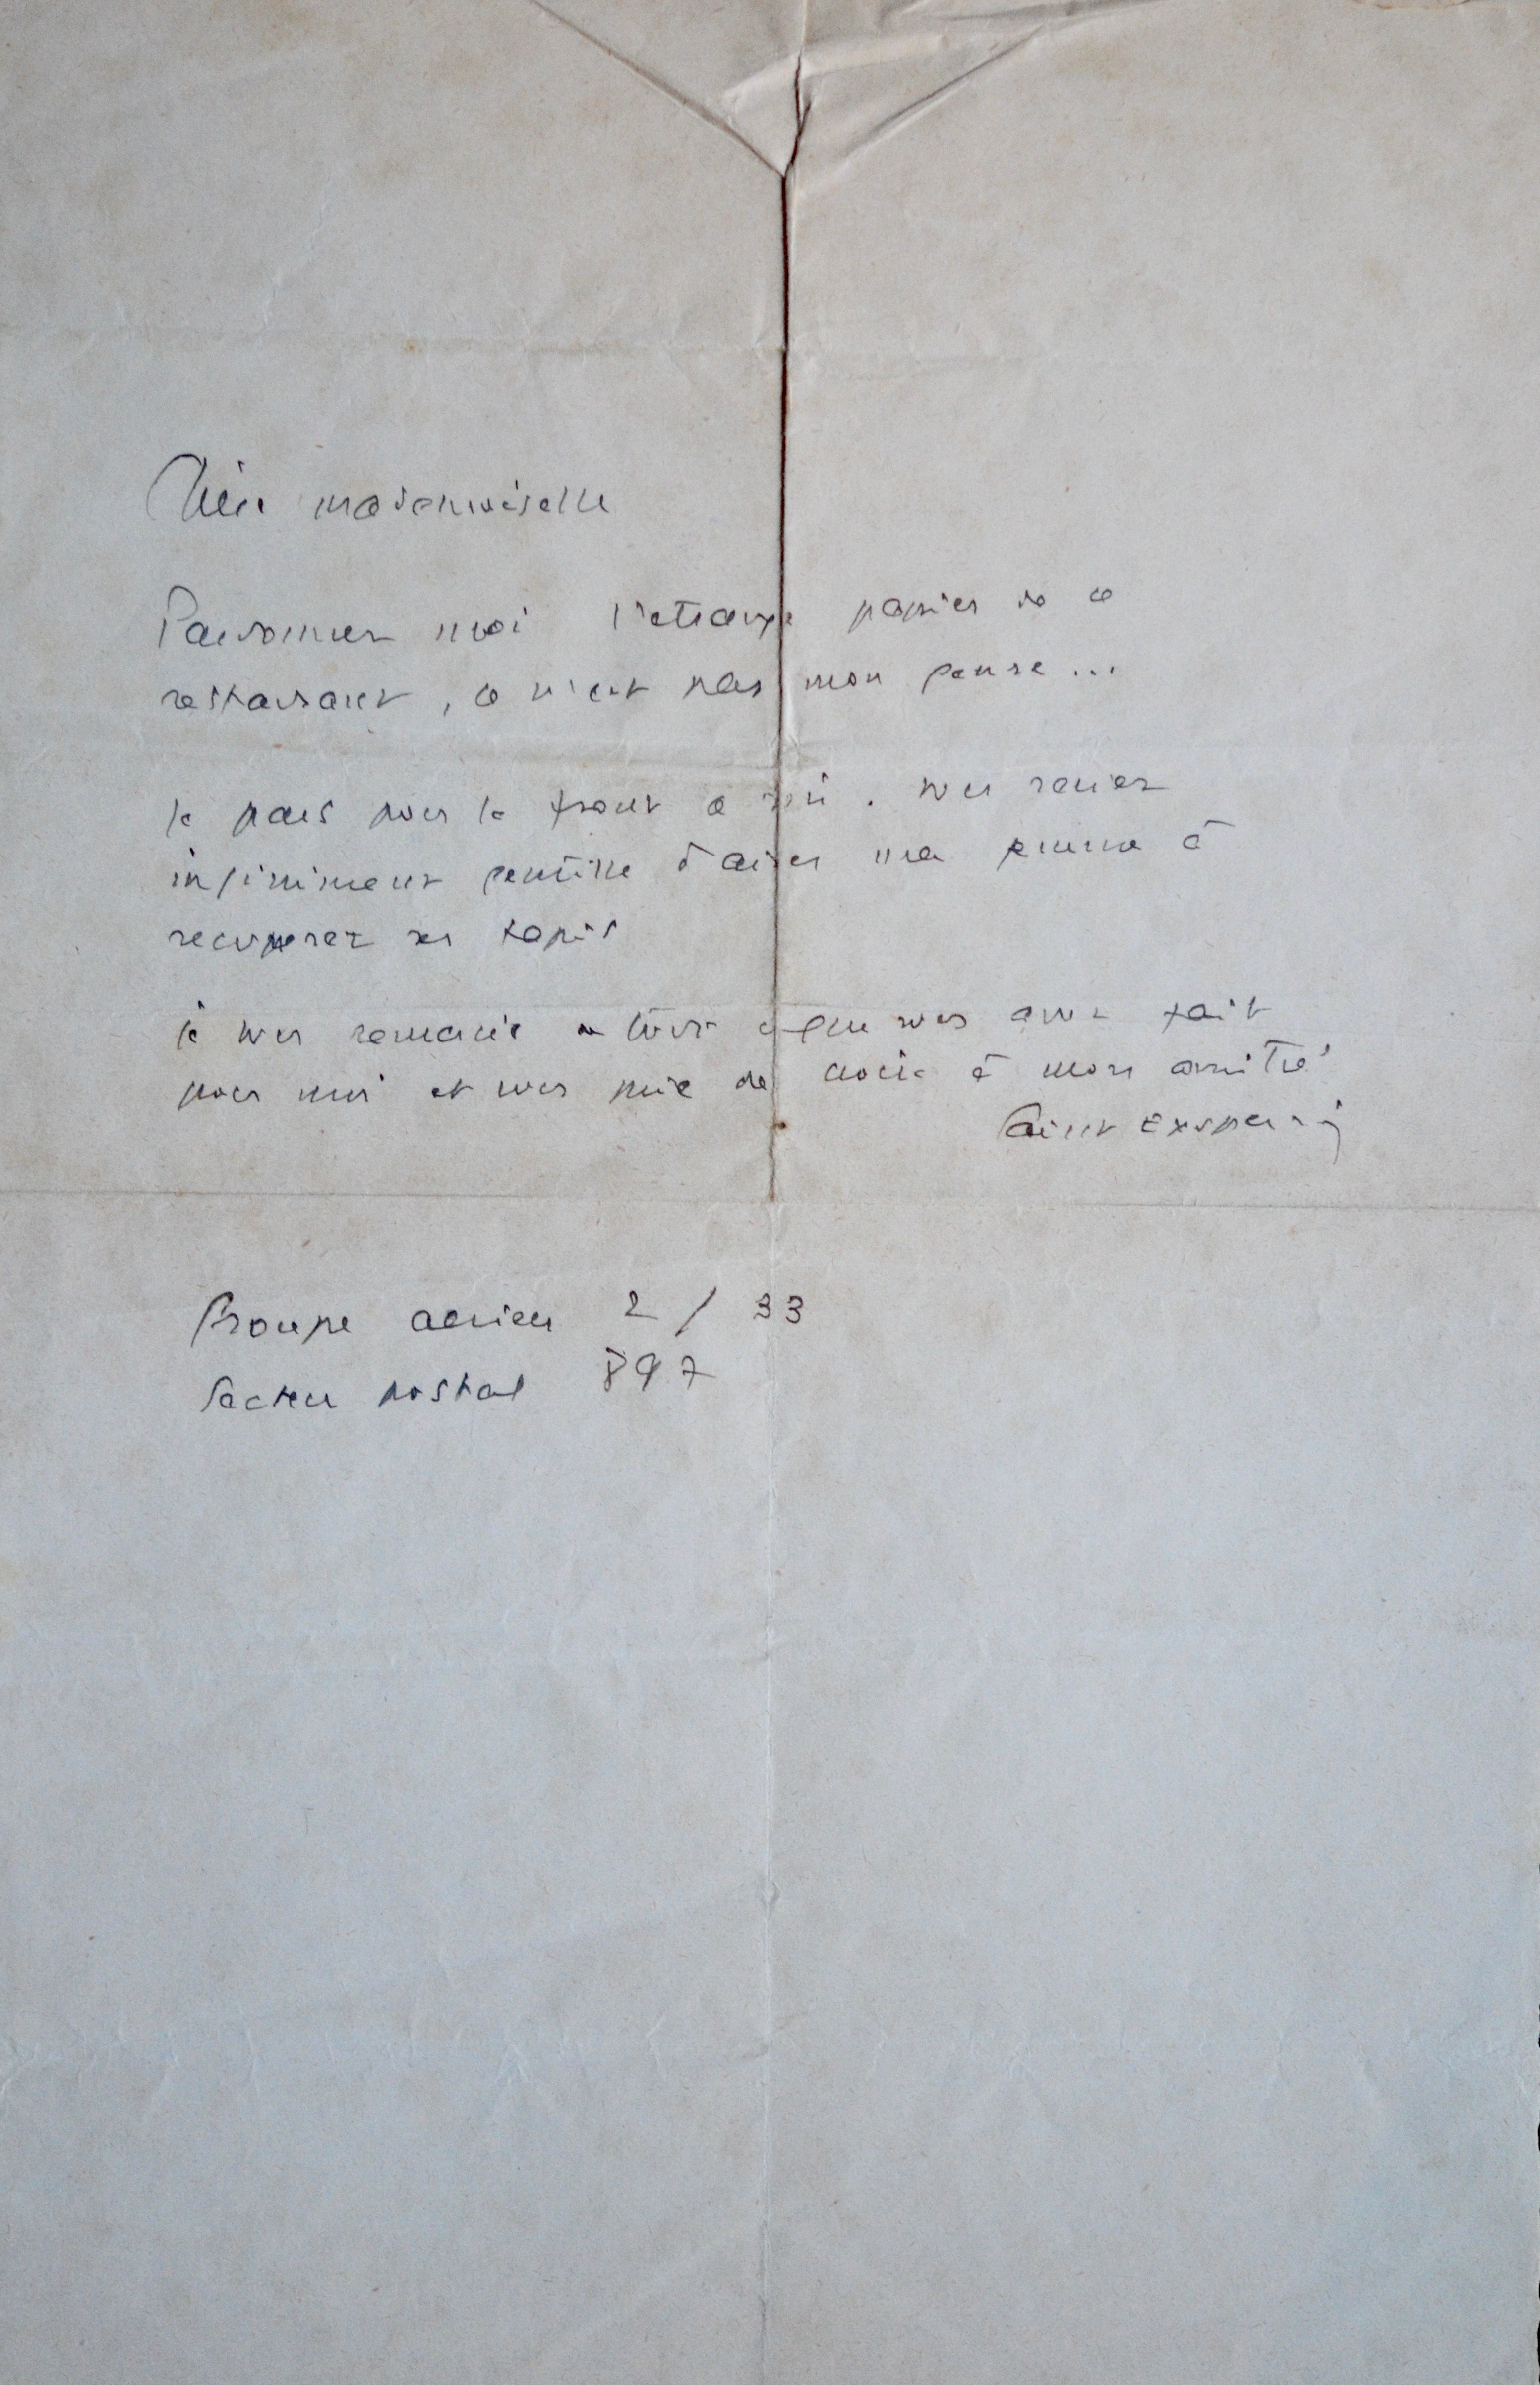 Chère mademoiselle
Pardonnez moi l'etrange papier de ce
restaurant, ce n'est pas mon genre...
Je pars pour le front ce soir. Vous seriez
infiniment gentille d'aider ma femme à
recuperer ses tapis
je vous remercie de tout ce que vous avez fait
pour moi et vous prie de croire à mon amitié
Saint Exupery
Groupe aerien 2 / 33
Secteur postal 897